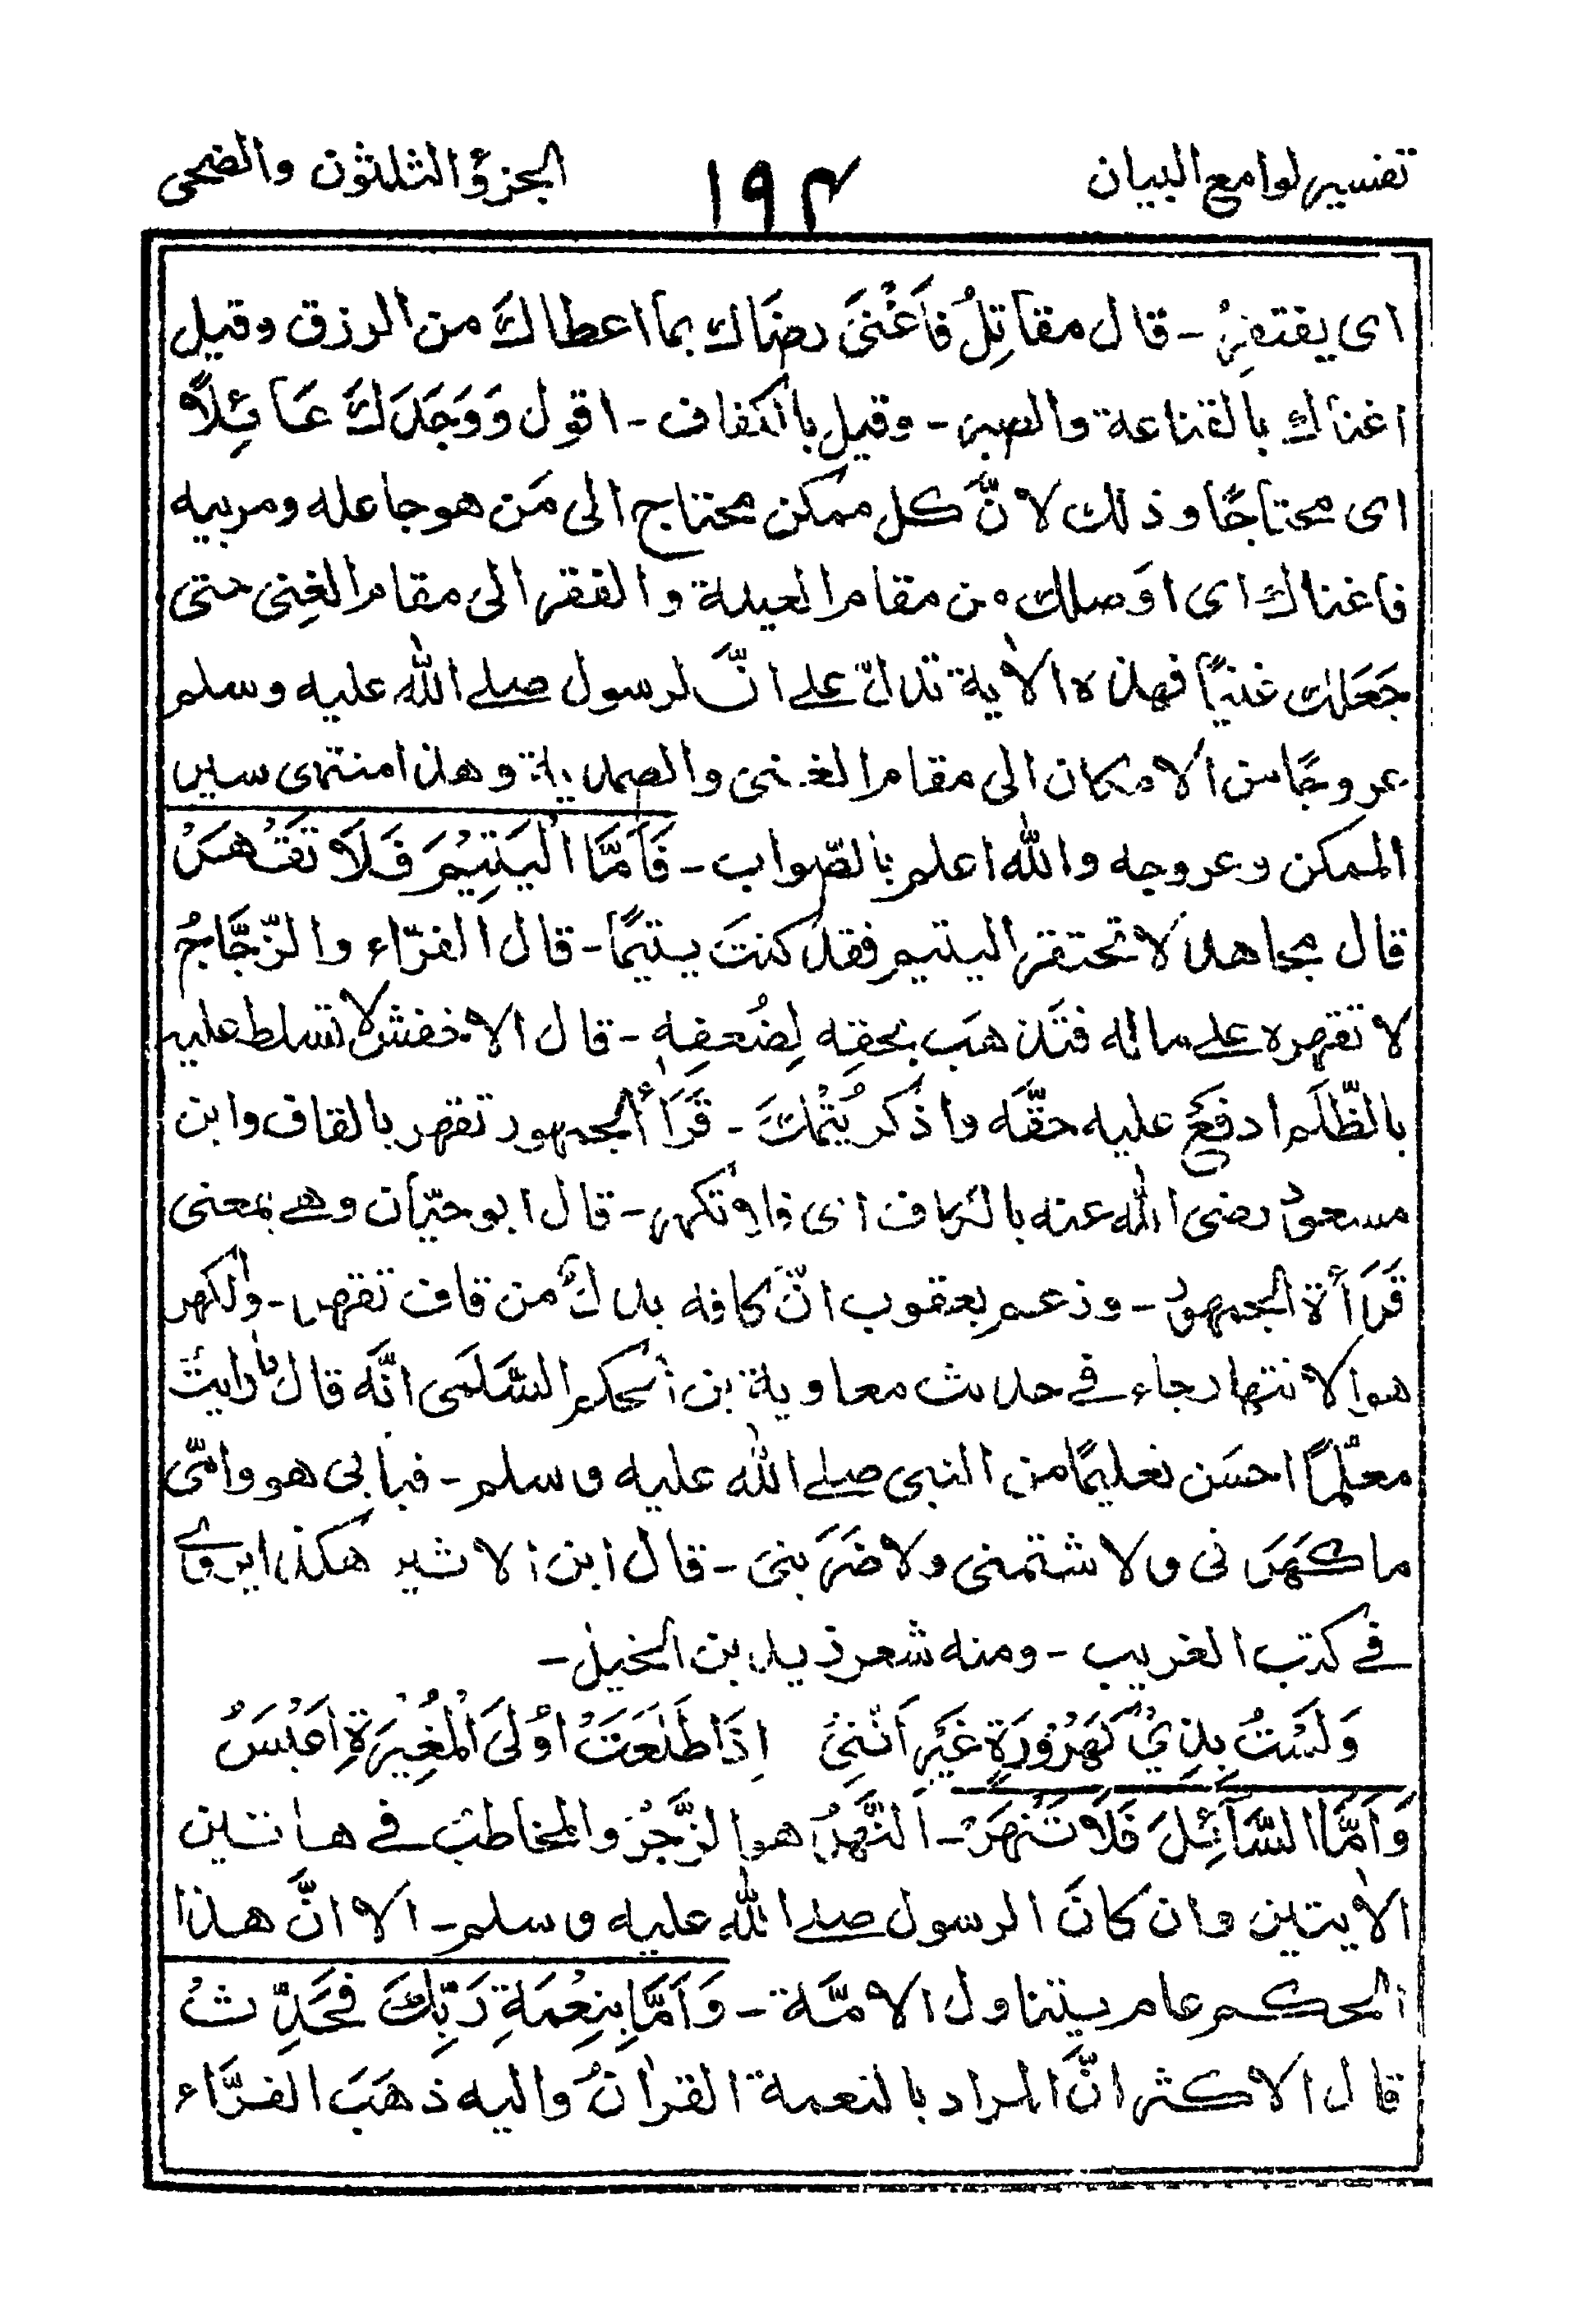 تفسير لوامع البيان ١٩٣ الجزؤ الثلثون والضحى
اى يفتقِرُ - قال مقاتِلُ فَاَغْنىَ رضَاك بما اعطاكَ من الرزق وقيل
اغناك بالقناعة والصبر - وقيل بالكفاف - اقول وَوَجَدَكَ عَائِلاً
اى محتاجًا وذلك لانَّ كل ممكن محتاج الى مَن هو جاعله ومربيه
فاغناك اى اوَصلك من مقام العيلة والفقر الى مقام الغِنى حتى
جَعَلك غنيًا فهذه الاٰية تدلّ على انّ لرسول صلى الله عليه وسلم
عروجًا من الامكان الى مقام الغنى والصمدية وهذا منتهى سير
الممكن وعروجه والله اعلم بالصّواب - فَاَمَّا الْيَتِيْمَ فَلَا تَقْهَرْ
قال مجاهد لا تحتقر اليتيم فقد كنتَ يتيمًا - قال الفرّاء والزّجَّاجُ
لا تقهره على ماله فتَذهَب بحقِه لِضُعفِهٖ - قال الاخفش لا تسلط عليه
بالظّلَم ادفَعْ عليه حقَّه واذكر يُتْمَكَ - قَرَأ الجمهور تقهر بالقاف وابن
مسعود رضى الله عنه بالكاف اى فلا تكهر - قال ابو حيّان وهى بمعنى
قَرَأة الجمهور - وزعم يعقوب انّ كافه بدلٌ من قاف تقهر - والكهر
هو الانتهار جاء فى حديث معاوية بن الحكم السَّلَمى انَّه قال ما رايتُ
معلّمًا احسَن تعليمًا من النبى صلى الله عليه وسلم - فبابى هو وامّى
ما كَهَرَ نى ولا شتمنى ولا ضَرَ بنى - قال ابن الاثير هكذا يروٰى
فى كتب الغريب - ومنه شعر زيد بن الخيل -
وَلَسْتُ بِذِيْ كَهْرُوْرَةٍ غَيْرِ اَنَّنِيْ اِذَا طَلَعَتْ اُوْلىَ الْمُغِيْرَةِ اَعْبَسُ
وَاَمَّا السَّآئِلَ فَلَا تَنْهَرْ - اَلنَّهْرُ هو الزَّجْرُ والمخاطب فى هاتين
الاٰيتين وان كانَ الرسول صلى الله عليه وسلم - الا انَّ هذا
الحكم عام يتناول الامَّة - وَاَمَّا بِنِعْمَةِ رَبِّكَ فَحَدِّثْ
قال الاكثر انَّ المراد بالنعمة القراٰنُ واليه ذهَبَ الفرَّاء